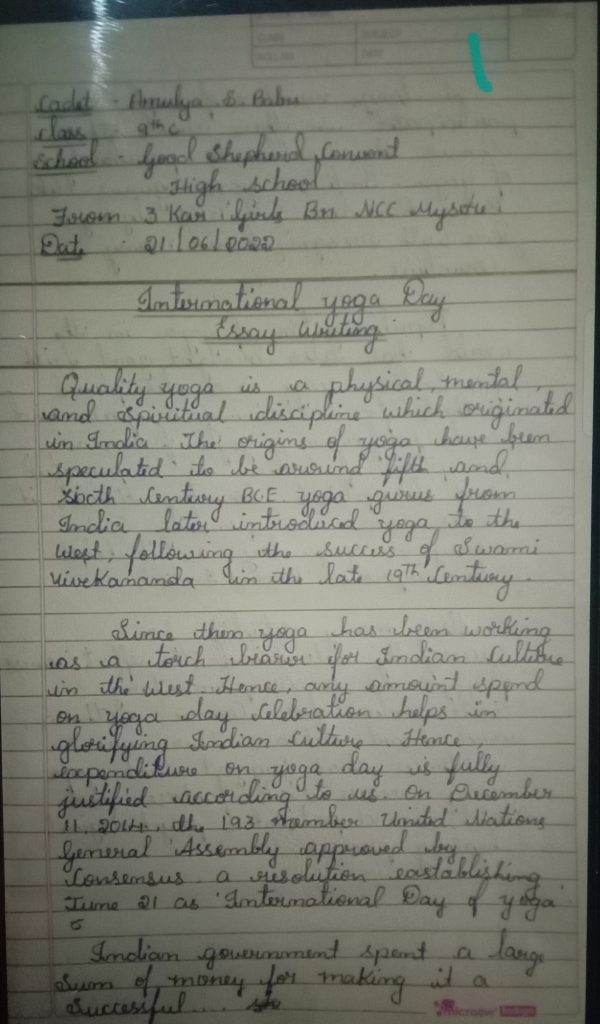 Cadet - Amulya S. Babu
Class - 9th C
School - Good Shepherd Convent
High school.
From 3 Kar Girls Bn NCC Mysore
Date - 21/06/2022
International yoga Day
Essay Writing
Quality yoga is a physical, mental,
and spiritual discipline which originated
in India. The origins of yoga have been
speculated to be around fifth and
sixth century BCE. yoga gurus from
India later introduced yoga to the
West, following the success of Swami
Vivekananda in the late 19th Century.
Since then yoga has been working
as a torch bearer for Indian Culture
in the West. Hence, any amount spend
on yoga day celebration helps in
glorifying Indian Culture. Hence,
expenditure on yoga day is fully
justified according to us. On December
11, 2014, the 193 member United Nations
General Assembly approved by
Consensus a resolution eastablishing
June 21 as 'International Day of yoga'
Indian government spent a large
Sum of money for making it a
Successful....